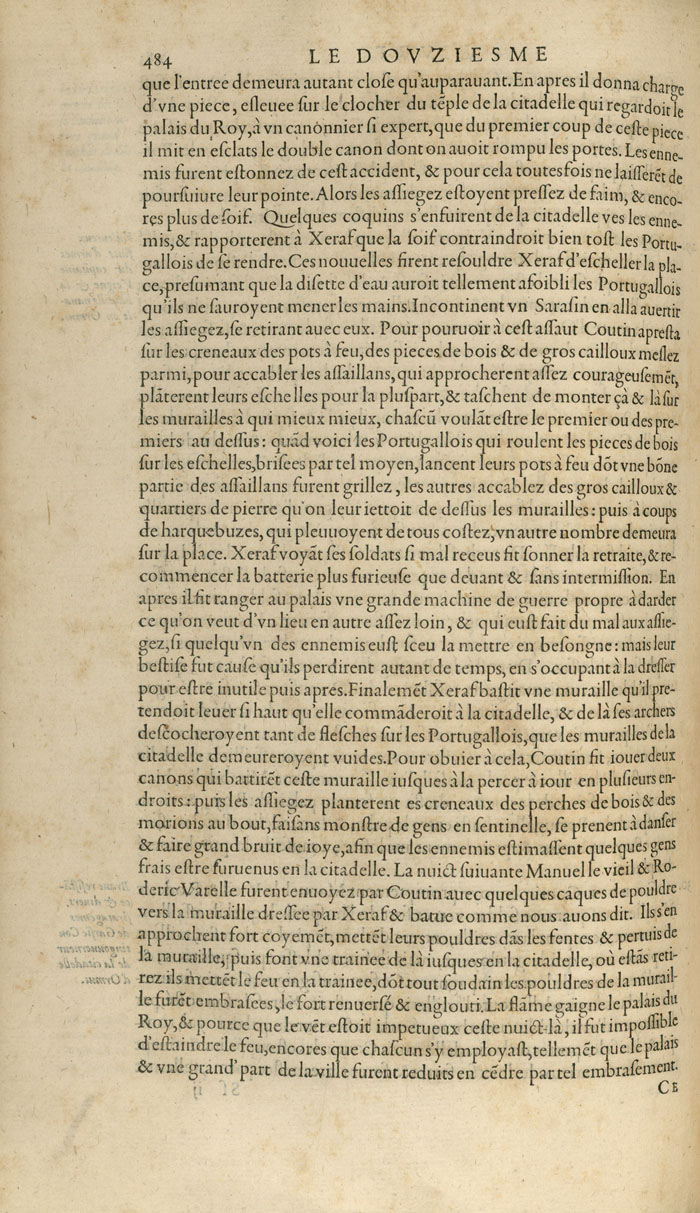 484 LE DOVZIESME
que l'entree demeura autant close qu'auparauant. En apres il donna charge
d'vne piece, esleuee sur le clocher du tẽple de la citadelle qui regardoit le
palais du Roy, à vn canonnier si expert, que du premier coup de ceste piece
il mit en esclats le double canon dont on auoit rompu les portes. Les enne-
mis furent estonnez de cest accident, & pour cela toutesfois ne laisserẽt de
poursuiure leur pointe. Alors les assiegez estoyent pressez de faim, & enco-
res plus de soif. Quelques coquins s'enfuirent de la citadelle ves les enne-
mis, & rapporterent à Xeraf que la soif contraindroit bien tost les Portu-
gallois de se rendre. Ces nouuelles firent resouldre Xeraf d'escheller la pla-
ce, presumant que la disette d'eau auroit tellement afoibli les Portugallois
qu'ils ne sauroyent mener les mains. Incontinent vn Sarasin en alla auertir
les assiegez, se retirant auec eux. Pour pouruoir à cest assaut Coutin apresta
sur les creneaux des pots à feu, des pieces de bois & de gros cailloux meslez
parmi, pour accabler les assaillans, qui approcherent assez courageusemẽt,
plãterent leurs eschelles pour la pluspart, & taschent de monter çà & là sur
les murailles à qui mieux mieux, chascũ voulãt estre le premier ou des pre-
miers au dessus: quãd voici les Portugallois qui roulent les pieces de bois
sur les eschelles, brisees par tel moyen, lancent leurs pots à feu dõt vne bõne
partie des assaillans furent grillez, les autres accablez des gros cailloux &
quartiers de pierre qu'on leur iettoit de dessus les murailles: puis à coups
de harquebuzes, qui pleuuoyent de tous costez, vn autre nombre demeura
sur la place. Xeraf voyãt ses soldats si mal receus fit sonner la retraite, & re-
commencer la batterie plus furieuse que deuant & sans intermission. En
apres il fit ranger au palais vne grande machine de guerre propre à darder
ce qu'on veut d'vn lieu en autre assez loin, & qui eust fait du mal aux assie-
gez, si quelqu'vn des ennemis eust sceu la mettre en besongne: mais leur
bestise fut cause qu'ils perdirent autant de temps, en s'occupant à la dresser
pour estre inutile puis apres. Finalemẽt Xeraf bastit vne muraille qu'il pre-
tendoit leuer si haut qu'elle commãderoit à la citadelle, & de là ses archers
descocheroyent tant de flesches sur les Portugallois, que les murailles de la
citadelle demeureroyent vuides. Pour obuier à cela, Coutin fit iouer deux
canons qui battirẽt ceste muraille iusques à la percer à iour en plusieurs en-
droits: puis les assiegez planterent es creneaux des perches de bois & des
morions au bout, faisans monstre de gens en sentinelle, se prenent à danser
& faire grand bruit de ioye, afin que les ennemis estimassent quelques gens
frais estre suruenus en la citadelle. La nuict suiuante Manuel le vieil & Ro-
deric Varelle furent enuoyez par Coutin auec quelques caques de pouldre
vers la muraille dressee par Xeraf & batue comme nous auons dit. Ils s'en
approchent fort coyemẽt, mettẽt leurs pouldres dãs les fentes & pertuis de
la muraille, puis font vne trainee de là iusques en la citadelle, où estãs reti-
rez ils mettẽt le feu en la trainee, dõt tout soudain les pouldres de la murail-
le furẽt embrasees, le fort renuersé & englouti. La flãme gaigne le palais du
Roy, & pource que le vẽt estoit impetueux ceste nuict là, il fut impossible
d'estaindre le feu, encores que chascun s'y employast, tellemẽt que le palais
& vne grand' part de la ville furent reduits en cẽdre par tel embrasement.
CE